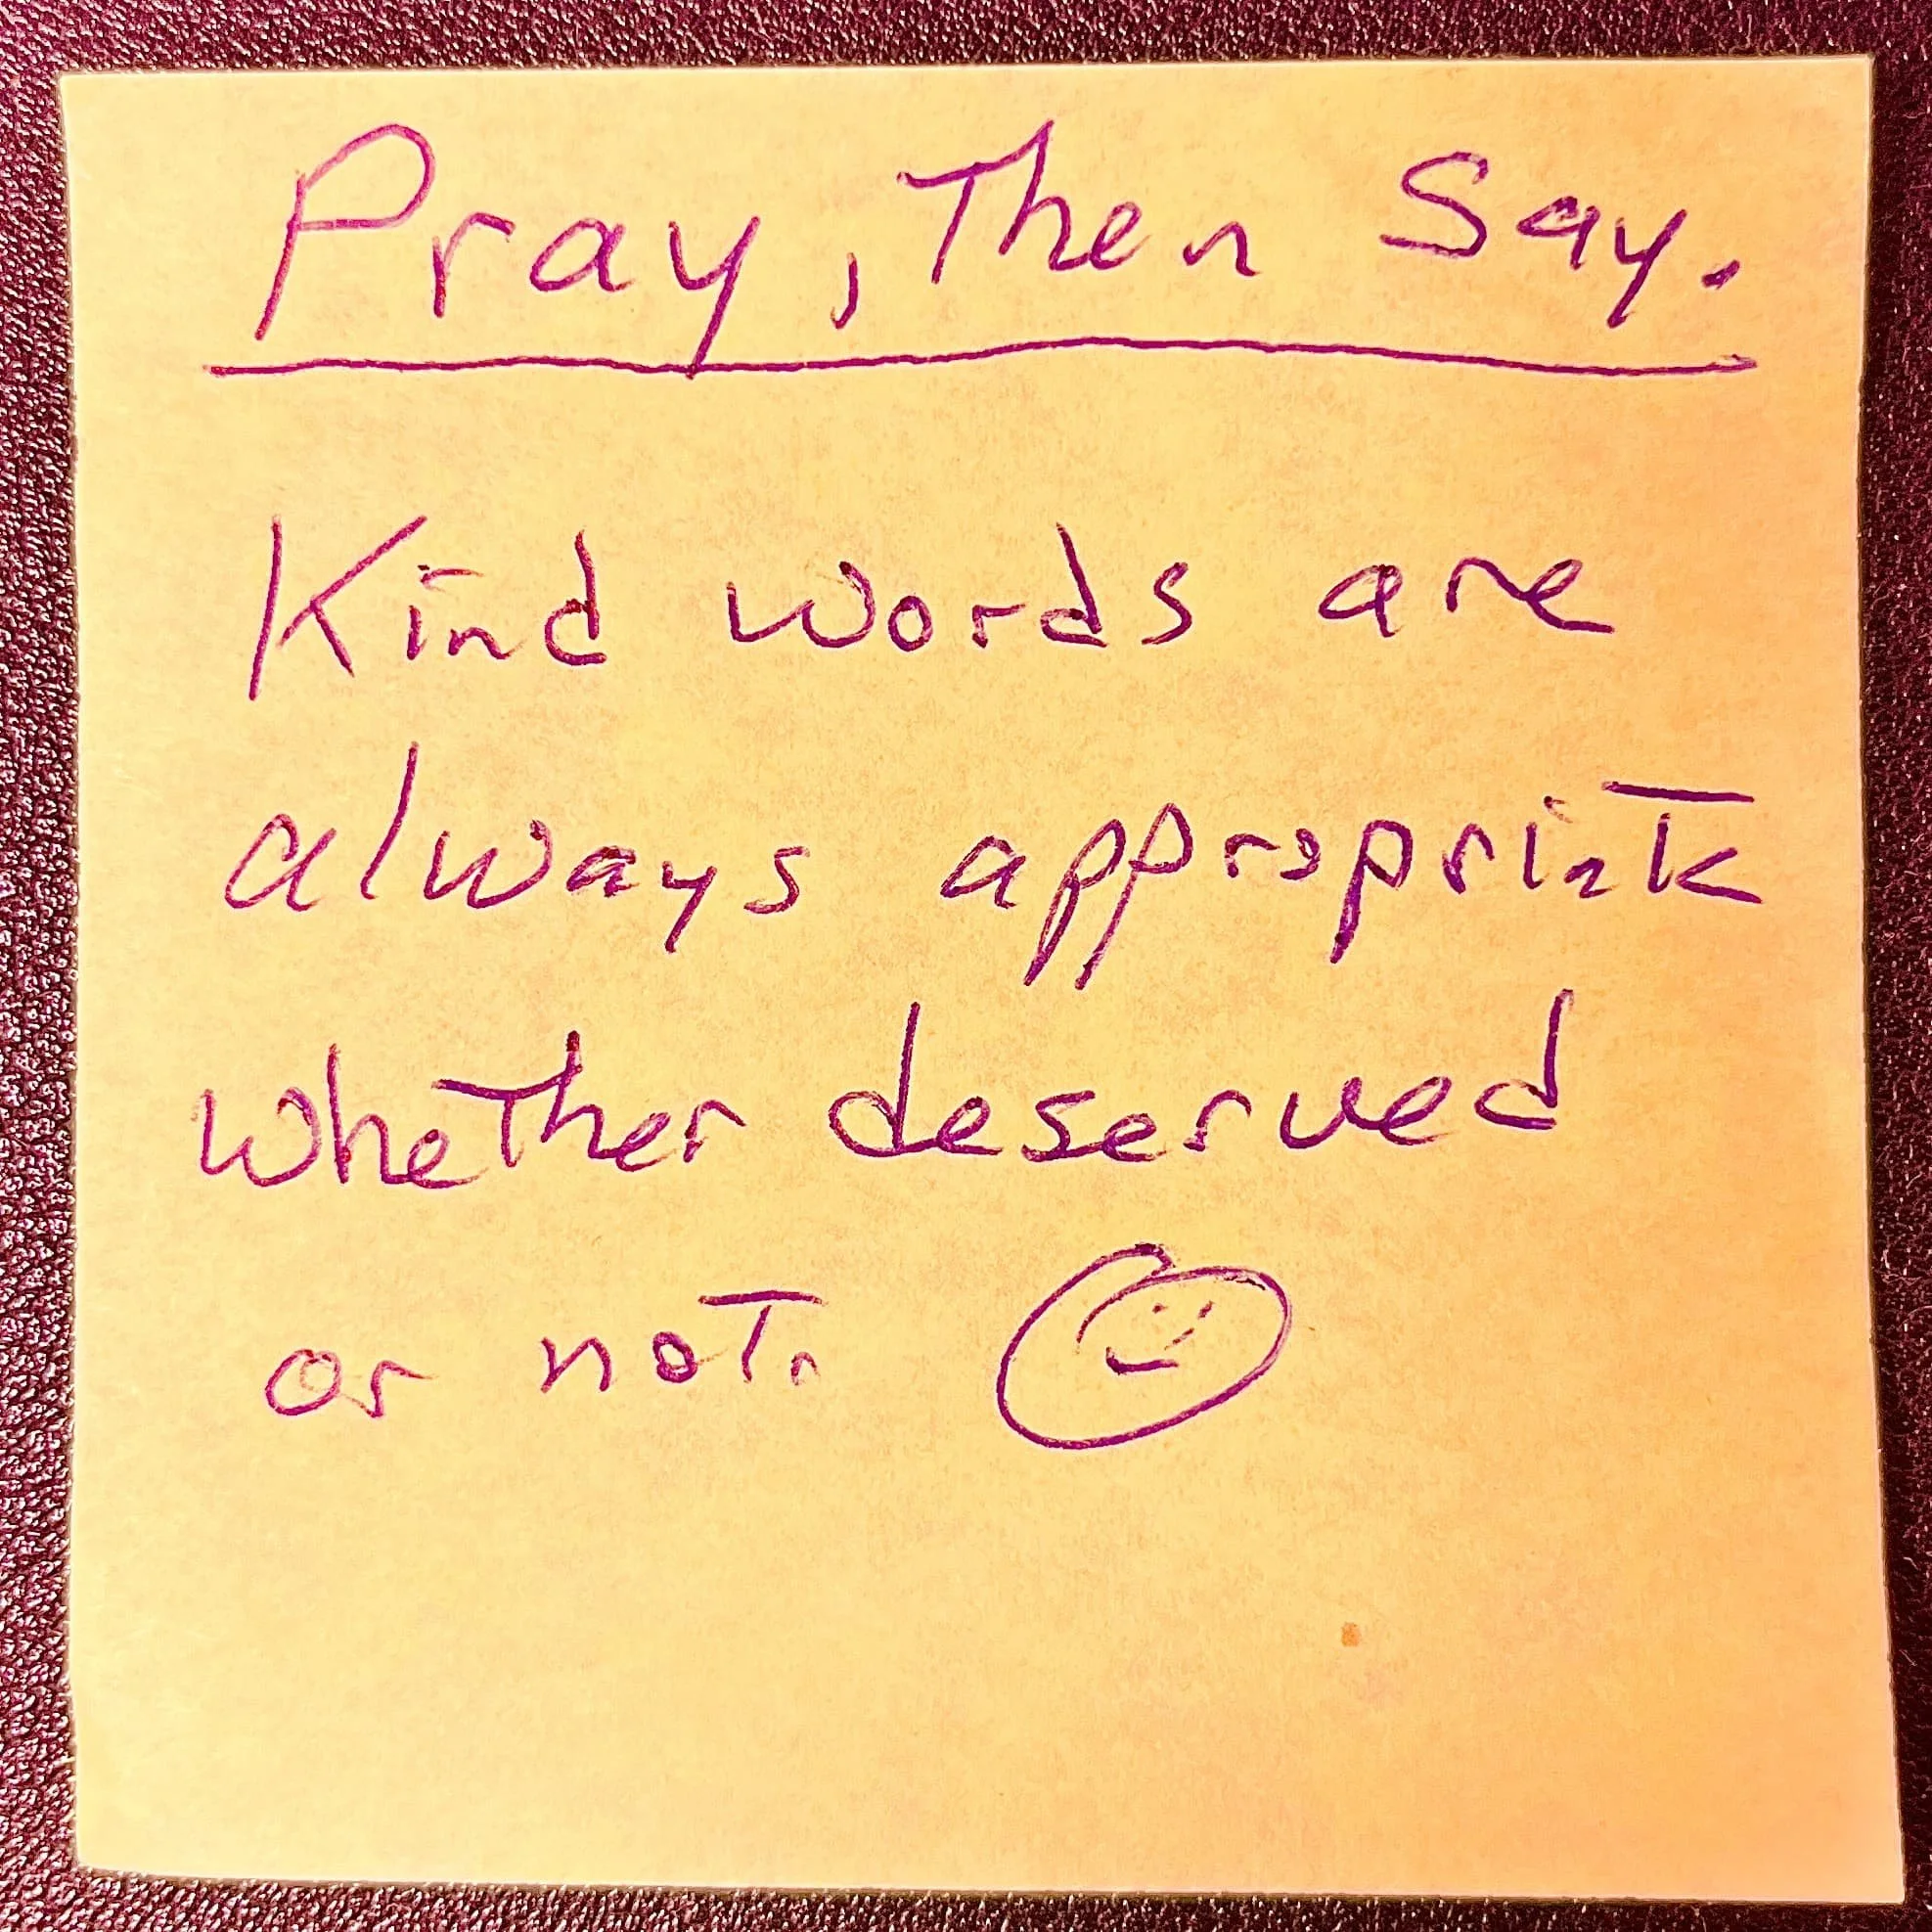 Pray, Then Say.
Kind words are
always appropriate
whether deserved
or not.